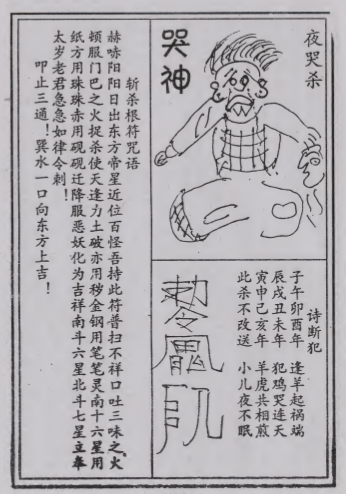 夜哭杀
哭神
诗断犯
子午卯酉年　逢羊起祸端
辰戌丑未年　犯鸡哭连天
寅申己亥年　羊虎共相煎
此杀不改送　小儿夜不眠
斩杀根符咒语
赫哧阳阳日出东方帝星近位百怪吾持此符普扫不祥口吐三味之火
顿服门巴之火捉杀使天逢力土破亦用秽金钢用笔笔灵南十六星用
纸方用珠珠赤用砚砚迁降服恶妖化为吉祥南斗六星北斗七星立奉
太岁老君急急如律令剌！
叩止三通！巽水一口向东方上吉！